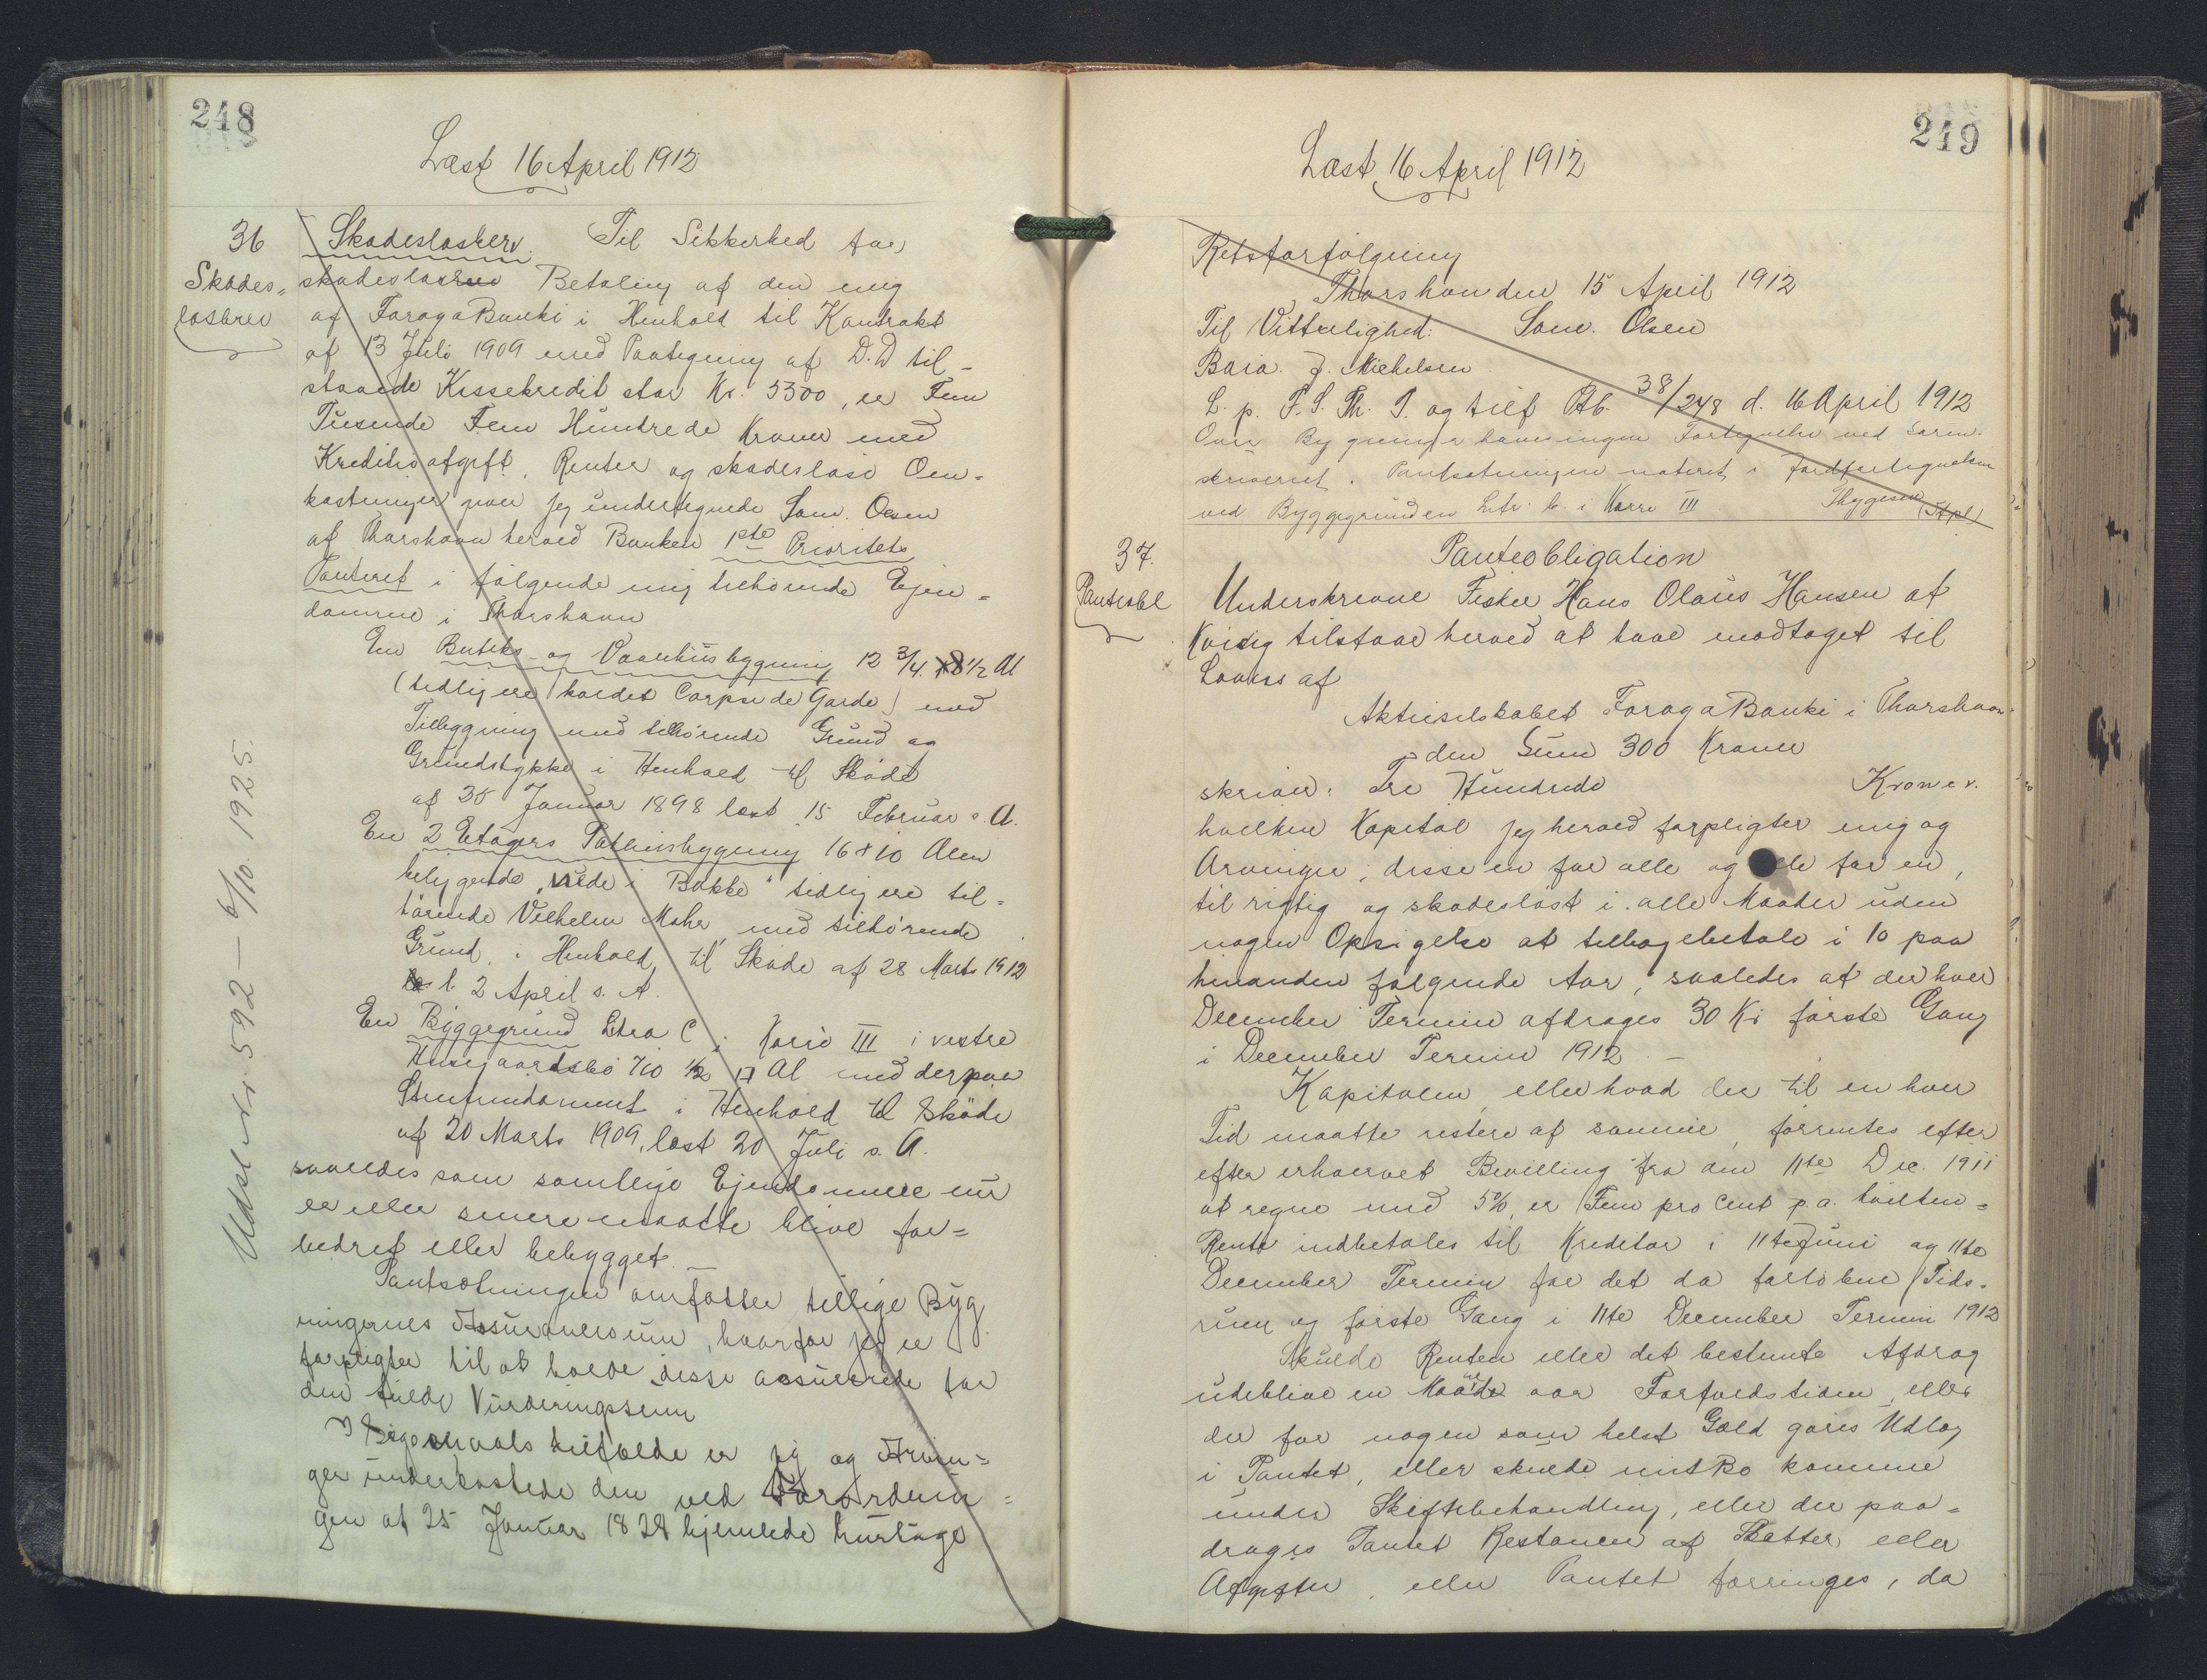 248
Læst 16 April 1912
36
Skades-
løsbrev
Skadesløsbrev. Til Sikkerhed for
skadesløs Betaling af den mig
af Føroya Banki i Henhold til Kontrakt
af 13 Juli 1909 med Paategning af D.D til-
staaede Kassekredit stor Kr. 5500, er Fem
Tusende Fem Hundrede Kroner med
Kreditivafgift, Renter og skadesløse Om-
kostninger giver jeg undertegnede Sam. Olsen
af Thorshavn herved Banken 1ste Prioritets
Panteret i følgende mig tilhørende Ejen-
domme i Thorshavn
En Butiks- og Vaarhusbygning 12 3/4 x 8 1/2 Al
(tidligere kaldet Corps de Garde) med
Tilbygning med tilhørende Grund og
Grundstykke i Henhold til Skøde
af 35 Januar 1898 læst 15 Februar s. A.
En 2 Etagers Pakhusbygning 16 x 10 Alen
beliggende "nede i Bakke" tidligere til-
hørende Vilhelm Mohr, med tilhørende
Grund, i Henhold til Skøde af 28 Marts 1912
læst 2 April s. A.
En Byggegrund Litra C i Karré III i vestre
Husegaardsbø 710 1/2 □ Al med derpaa
Stenfundament i Henhold til Skøde
af 20 Marts 1909, læst 20 Juli s. A.
saaledes som samtlige Ejendomme nu
er eller senere maatte blive for-
bedret eller bebygget. —
Pantsætningen omfatter tillige Byg
ningernes Assurancesum, hvorfor jeg er
forpligtet til at holde disse assurerede for
den fulde Vurderingssum
I Søgsmaals tilfælde er jeg og Arvin-
ger underkastede den ved Forordnin-
gen af 25 Januar 1828 hjemlede hurtige
Udsl. Nr. 592 — 6/10 1925.
249
Læst 16 April 1912
Retsforfølgning
Thorshavn den 15 April 1912
Til Vitterlighed: Sam. Olsen
J. Michelsen
L. p. F. S. Th. T. og tilf Ptb. 38/248 d. 16 April 1912
Over Bygninger haves ingen Fortegnelse ved Soren-
skriveriet. Pantsætningen noteret i Jordfortegnelsen
ved Byggegrunden Litr. b. i Karre III Thygesen (Stpl)
37.
Panteobl
Panteobligation
Underskrevne Fisker Hans Olaus Hansen af
Kvivig tilstaar herved at have modtaget til
Laans af
Aktieselskabet Føroya Banki i Thorshavn
den Sum 300 Kroner
skriver: Tre Hundrede Kroner.
hvilken Kapital jeg herved forpligter mig og
Arvinger, disse en for alle og alle for en,
til rigtig og skadesløst i alle Maader uden
nogen Opsigelse at tilbagebetale i 10 paa
hinanden følgende Aar, saaledes at der hver
December Termin afdrages 30 Kr første Gang
i December Termin 1912 —
Kapitalen, eller hvad der til en hver
Tid maatte restere af samme, forrentes efter
efter erhvervet Bevilling fra den 11te Dec. 1911
at regne med 5%, er Fem pro Cent p. a. hvilken-
Rente indbetales til Kreditor i 11te Juni og 11te
December Termin for det da forløbne Tids-
rum og første Gang i 11te December Termin 1912
Skulde Renten eller det bestemte Afdrag
udeblive en Maaned over Forfaldstiden, eller
der for nogen som helst Gæld gøres Udlæg
i Pantet, eller skulde mit Bo komme
under Skiftebehandling, eller der paa-
drages Pantet Restancer af Skatter eller
Afgifter, eller Pantet forringes, da